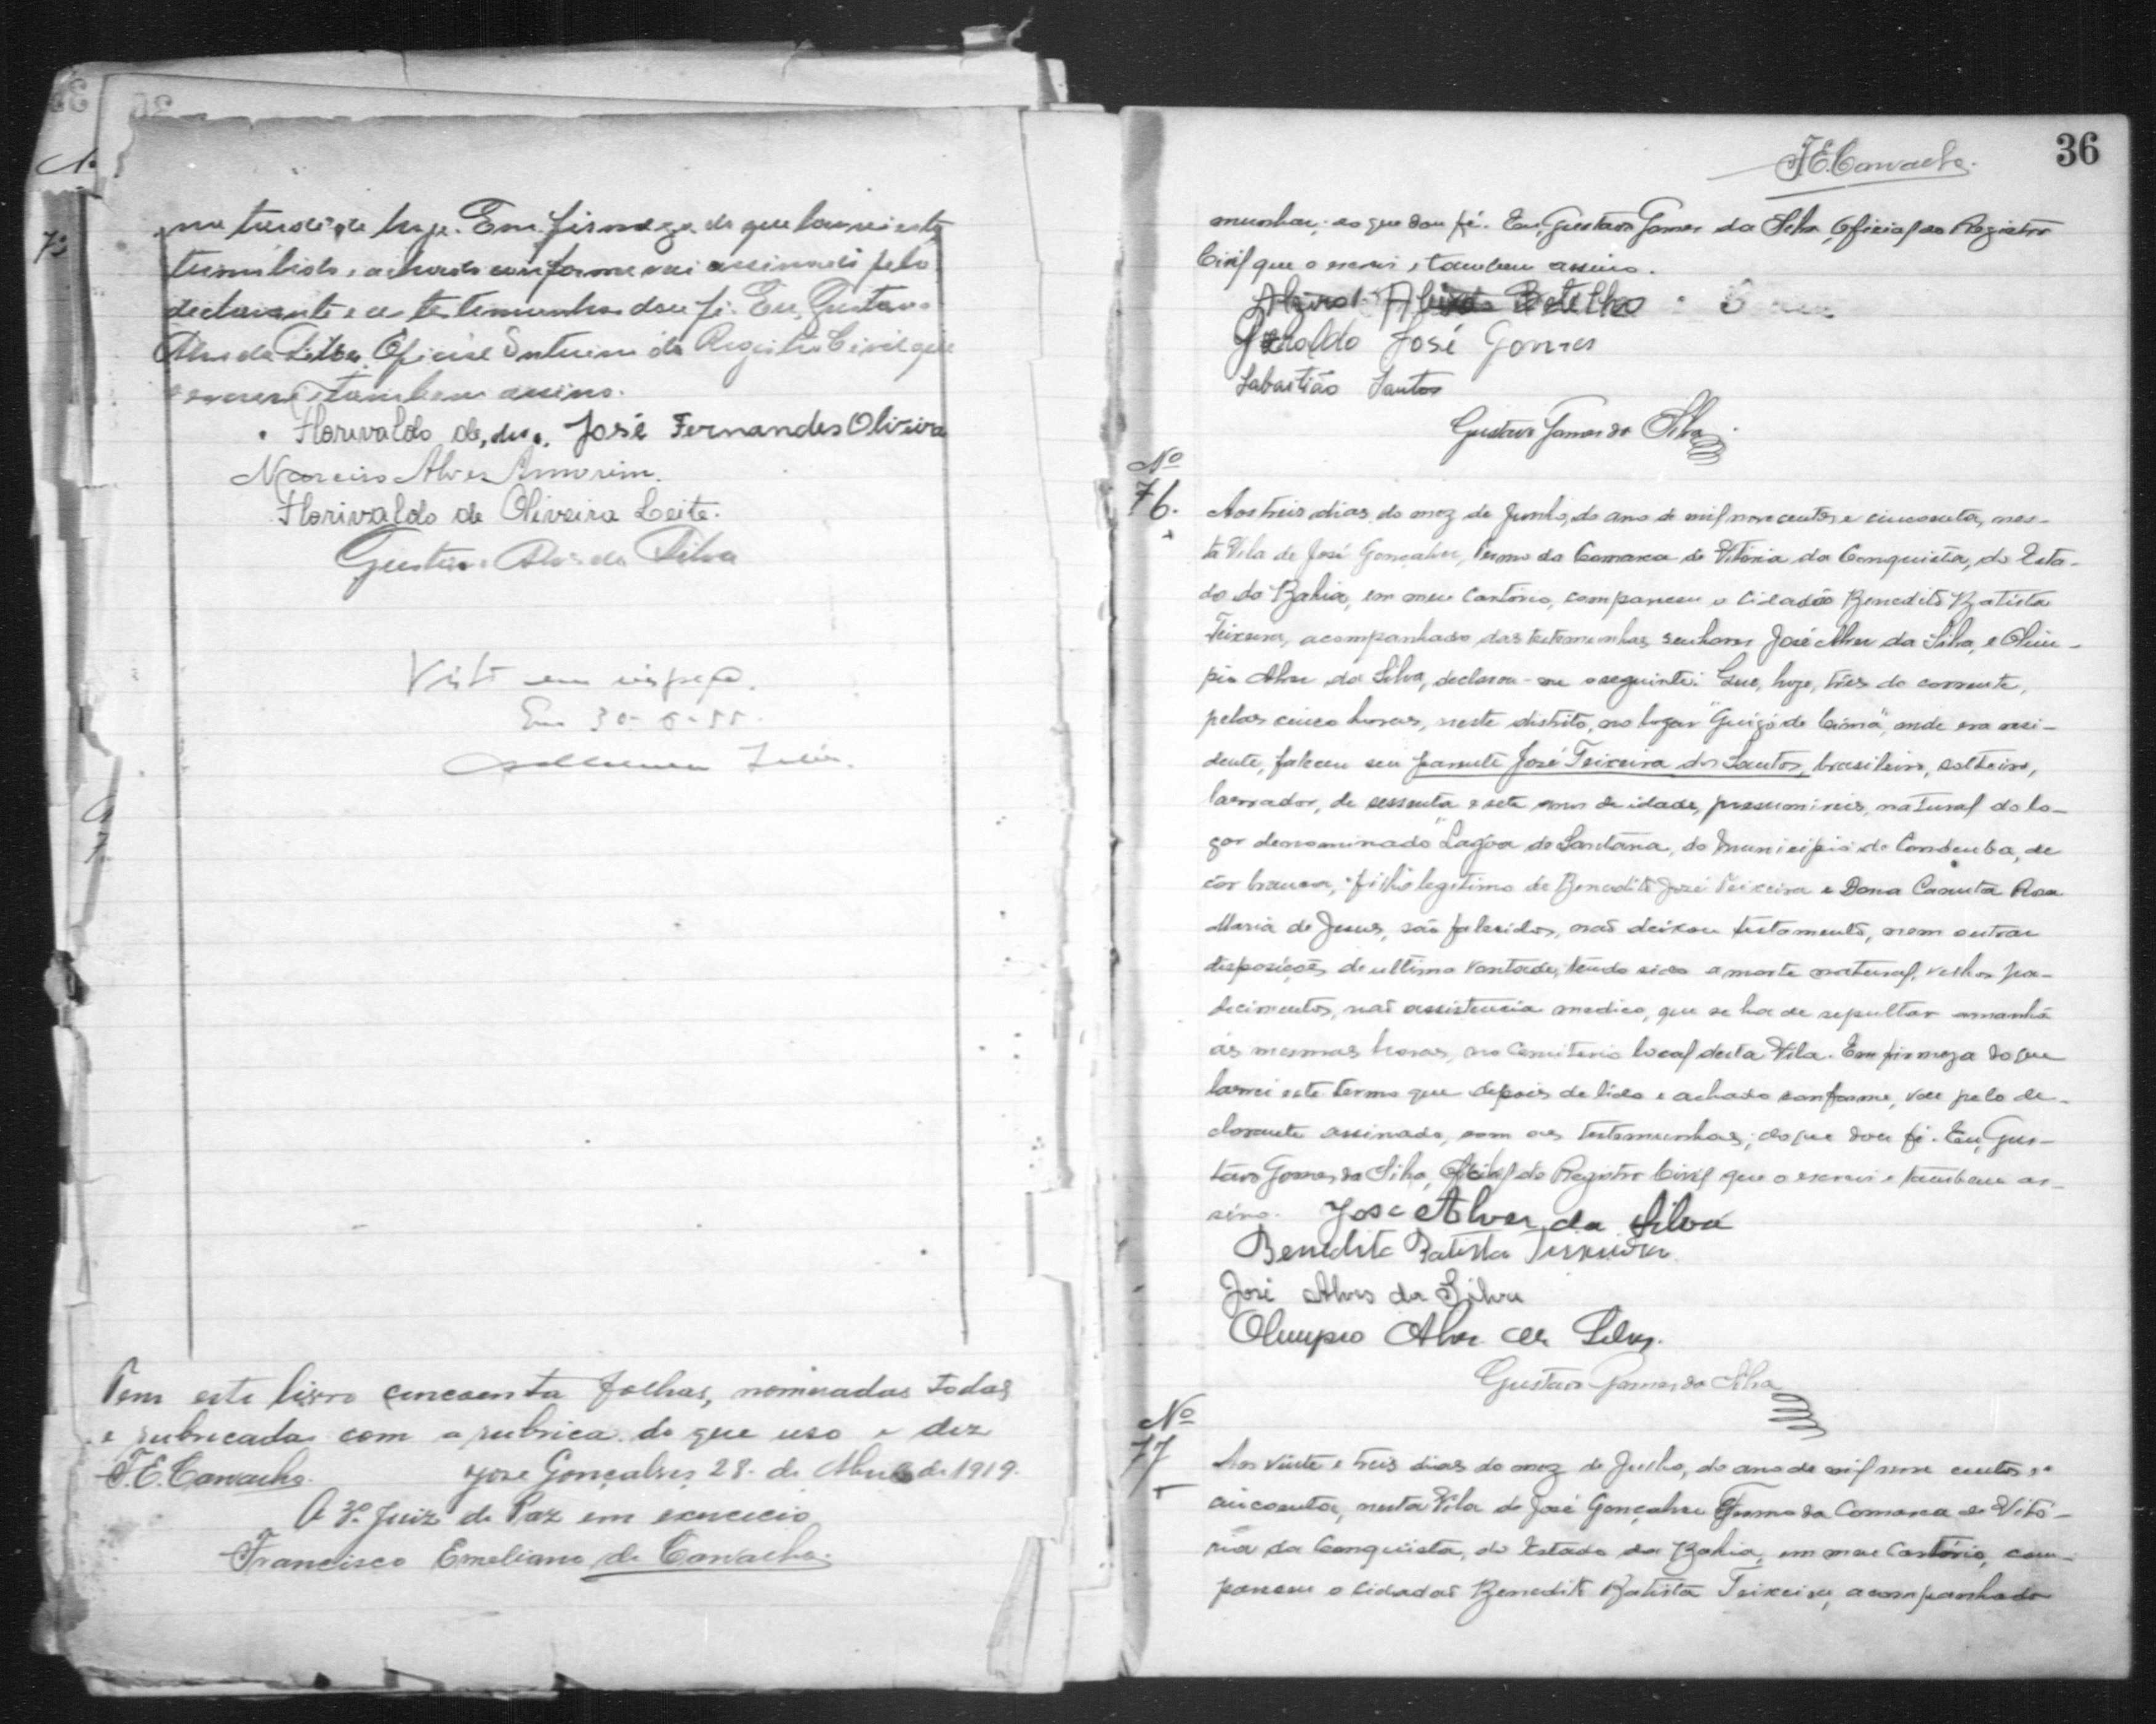 na tarde de hoje. Em firmeza do que lavrei este
termo lido e achado conforme vai assinado pelo
declarante e as testemunhas dou fé. Eu, Gustavo
Alves da Silva Oficial Interino do Registro Civil que
escrevi e tambem assino.
Florivaldo de, digo, José Fernandes Oliveira
Alves Amorim.
Florivaldo de Oliveira Leite.
Gustavo Alves da Silva
Visto em inspeção.
Em 30-6-55.
Tem este livro cincoenta folhas, nomeradas todas
e rubrecadas com a rubrica de que uso e diz
F.E. Carvalho. José Gonçalves 28. de Abril de 1919.
O 3º Juiz de Paz em exercicio
Francisco Emeliano de Carvalho.
36
F.E. Carvalho.
munhas; do que dou fé. Eu, Gustavo Gomes da Silva, Oficial do Registro
Civil que o escrevi e tambem assino.
Botelho
Geraldo José Gomes
Sabastião Santos
Gustavo Gomes da Silva
Nº
76.
Aos treis dias do mez de Junho, do ano de mil nove centos e cincoenta, nes-
ta Vila de José Gonçalves, Termo da Comarca de Vitória da Conquista, do Esta-
do da Bahia, em meu Cartório, compareceu o cidadão Benedito Batista
Teixeira, acompanhado das testemunhas, senhores José Alves da Silva, e Olim-
pio Alves da Silva, declarou-me o seguinte: Que, hoje, três do corrente,
pelas cinco horas, neste distrito, no lugar "Guigó de Cima", onde era resi-
dente, faleceu seu parente José Teixeira dos Santos, brasileiro, solteiro,
lavrador, de sessenta e sete anos de idade, presumiveis, natural do lo-
gar denominado "Lagôa de Santana, do Municipio de Condeuba, de
côr branca, filho legitimo de Benedito José Teixeira e Dona Canuta Rosa
Maria de Jesus, são falecidos, não deixou testamento, nem outras
disposições de ultima vontade, tendo sido a morte natural, velhos pa-
decimentos, não assistencia medica, que se ha de sepultar amanhã
ás mesmas horas, no Cemiterio local desta Vila. Em firmeza do que
lavrei este termo que depois de lido e achado conforme, vae pelo de-
clarante assinado, com as testemunhas; do que dou fé. Eu, Gus-
tavo Gomes da Silva, Oficial do Registro Civil que o escrevi e tambem as-
sino. José Alves da Silva
Benedito Batista Teixeira
José Alves da Silva
Olimpio Alves da Silva.
Gustavo Gomes da Silva
Nº
77
Aos vinte e treis dias do mez de Julho, do ano de mil nove centos e
cincoenta, nesta Vila de José Gonçalves Termo da Comarca de Vitó-
ria da Conquista, do Estado da Bahia, em meu Cartório, com-
pareceu o cidadão Benedito Batista Teixeira, acompanhado